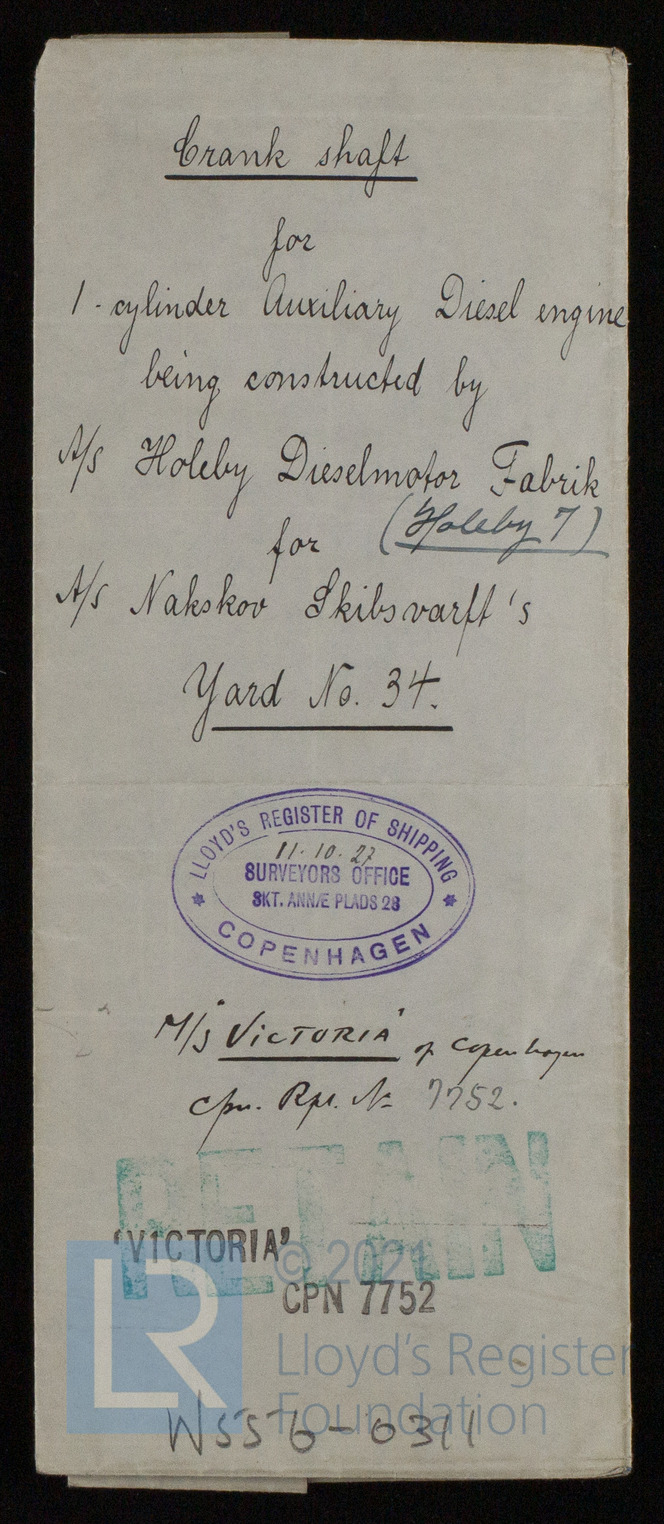 Crank shaft
for
1-cylinder Auxiliary Diesel engine
being constructed by
A/S Holeby Dieselmotor Fabrik
(Holeby 7)
for
A/S Nakskov Skibsvarft's
Yard No. 34.
LLOYD'S REGISTER OF SHIPPING
11.10.27
SURVEYORS OFFICE
SKT. ANNÆ PLADS 28
COPENHAGEN
M/S "VICTORIA" of Copenhagen
Cpn. Rpt. No 7752.
RETAIN
"VICTORIA"
© 2021
CPN 7752
LR
Lloyd's Register
Foundation
W556-0311